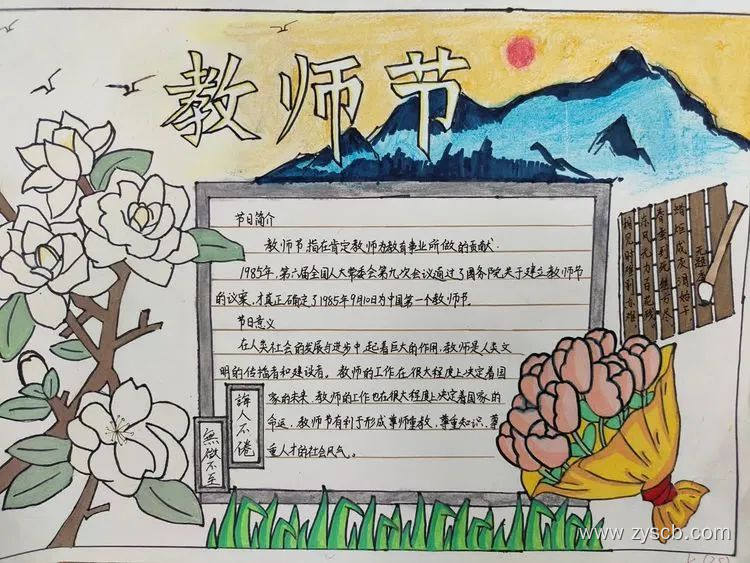 教师节
节日简介
教师节,指在肯定教师为教育事业所做的贡献.
1985年,第六届全国人大常委会第九次会议通过了国务院关于建立教师节
的议案,才真正确定了1985年9月10日为中国第一个教师节.
节日意义
在人类社会的发展与进步中,起着巨大的作用.教师是人类文
明的传播者和建设者。教师的工作在很大程度上决定着国
家的未来.教师的工作也在很大程度上决定着国家的
命运,教师节有利于形成尊师重教、尊重知识、尊
重人才的社会风气。
誨人不倦
無微不至
无题
蜡炬成灰泪始干
春蚕到死丝方尽
东风无力百花残
相见时难别亦难
www.zyscb.com